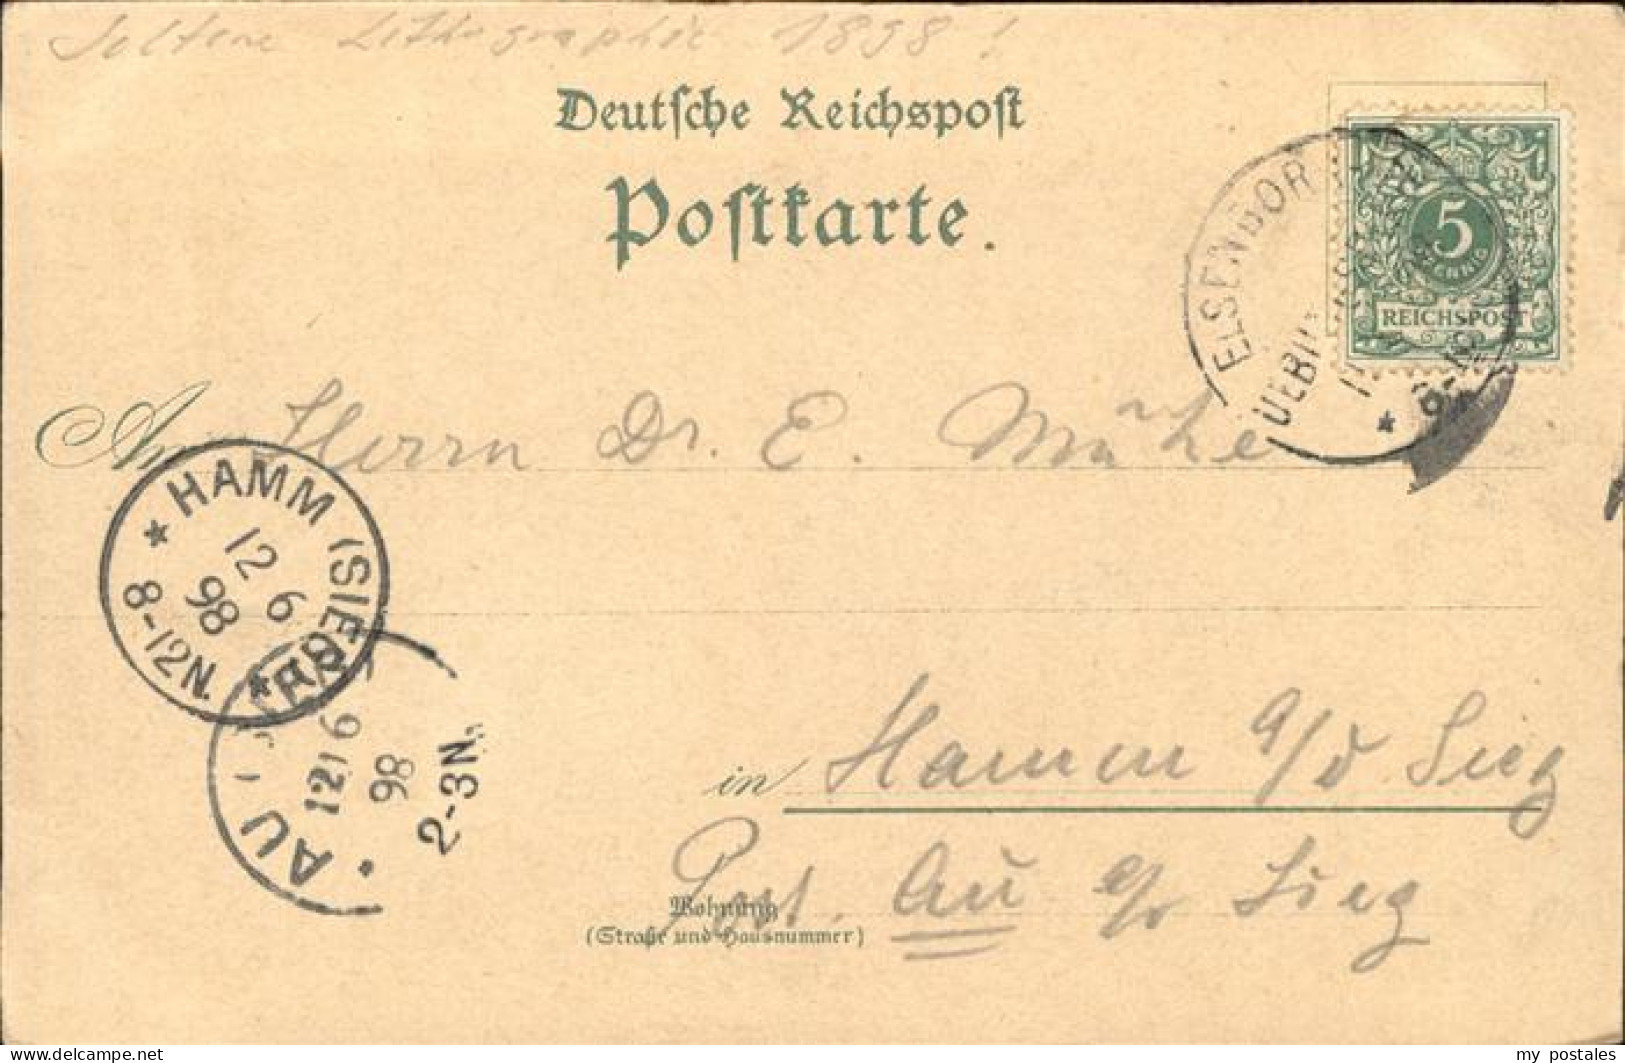 Seltene Lithographie 1898!
Deutsche Reichspost
Postkarte.
5
PFENNIG
REICHSPOST
ELSENDOR
An Herrn Dr. E. Mühe
* HAMM (SIEG) *
12 6
98
8-12N.
AU
12 6
98
2-3N.
in Hamm a/d Sieg
Post. Au a/d Sieg
Wohnung
(Straße und Hausnummer)
my postales